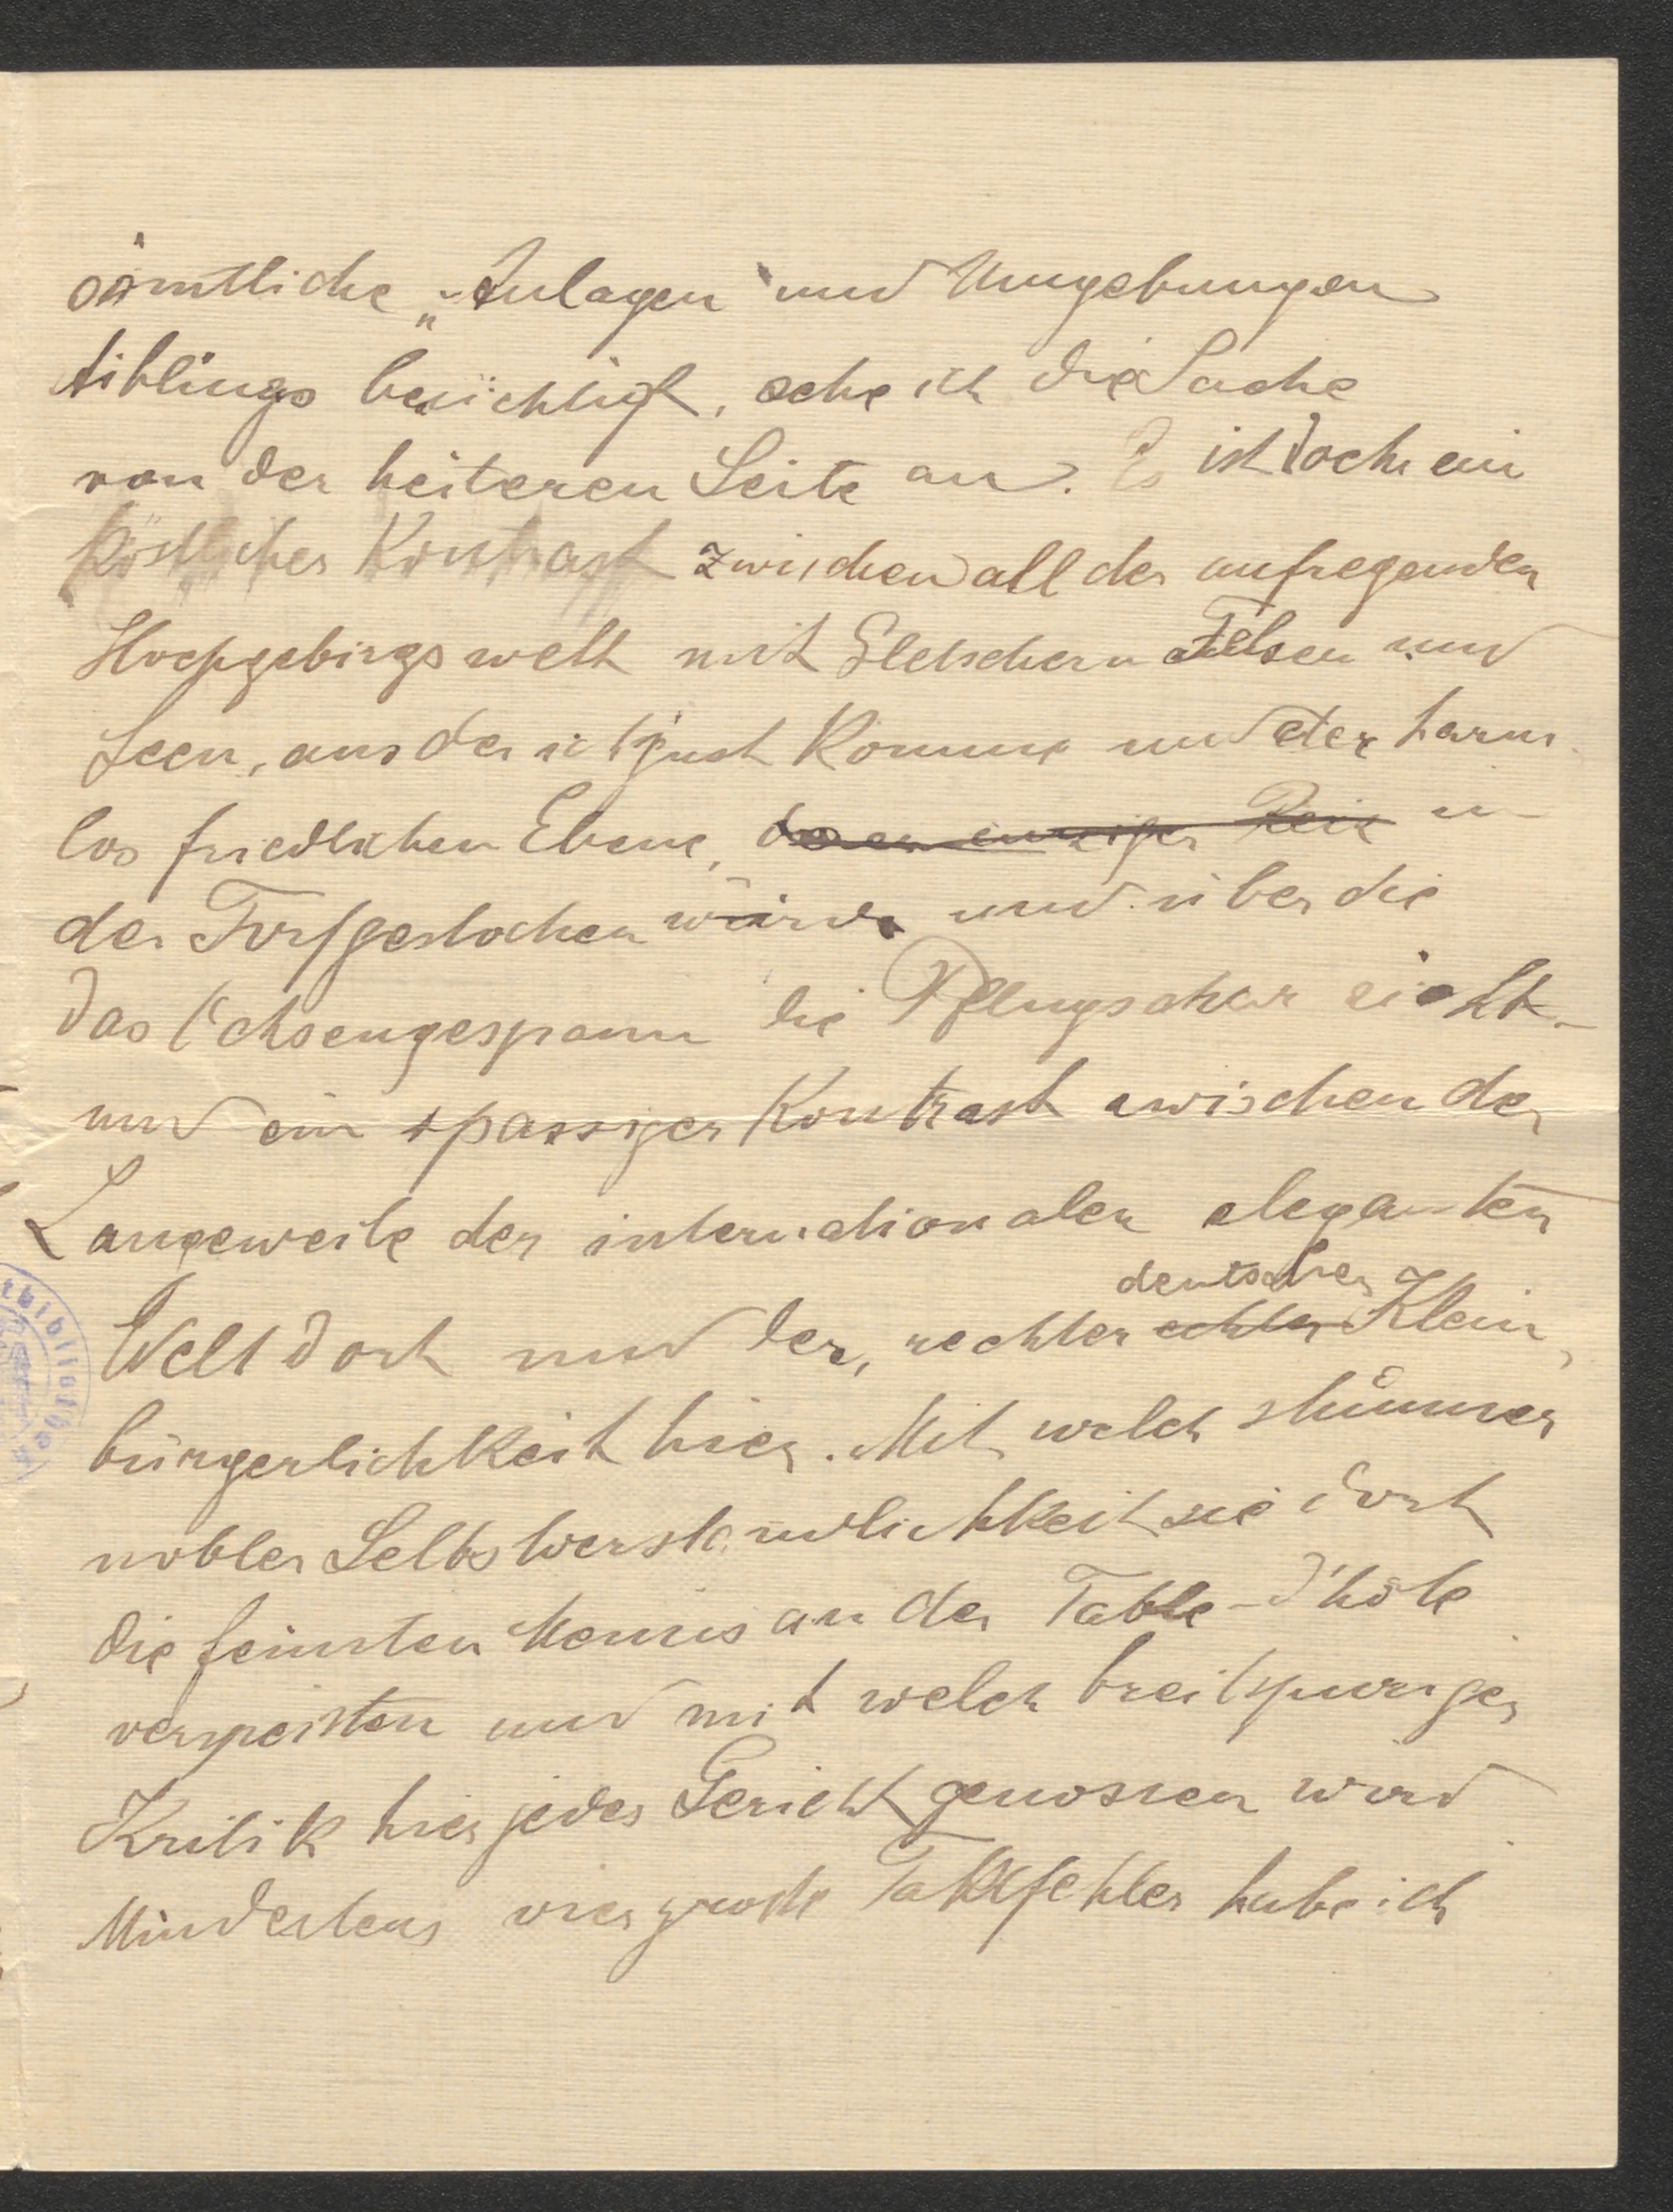 sämtliche „Anlagen“ und Umgebungen
Aiblings besichtigt, sehe ich die Sache
von der heiteren Seite an. Es ist doch ein
köstlicher Kontrast zwischen all der aufregenden
Hochgebirgswelt mit Gletschern Felsen und
Seen, aus der ich just komme und der harm-
los friedlichen Ebene, deren einziger Reiz in
der Torf gestochen wird und über die
das Ochsengespann die Pflugschar zieht –
und ein spassiger Kontrast zwischen der
Langeweile der internationalen eleganten
deutscher
Welt dort und der, rechter echter Klein,
bürgerlichkeit hier. Mit welch stummer
nobler Selbstverständlichkeit sie dort
die feinsten Menus an der Table-d'hôte
verspeisten und mit welch breitspuriger
Kritik hier jedes Gericht genossen wird
Mindestens vier grosse Taktfehler habe ich